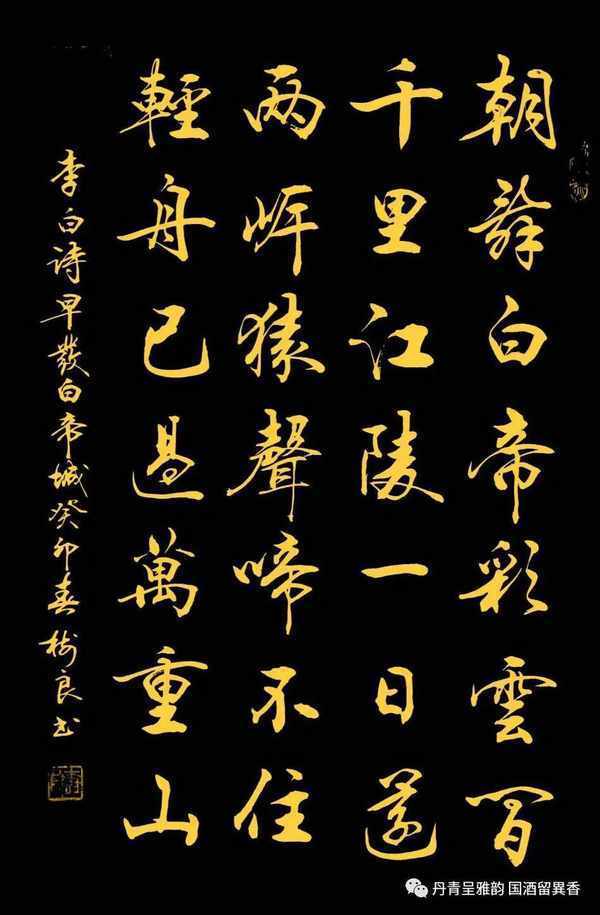 朝辭白帝彩雲間
千里江陵一日還
两岸猿聲啼不住
輕舟已過萬重山
李白詩早發白帝城癸卯春树良书
丹青呈雅韵 国酒留異香